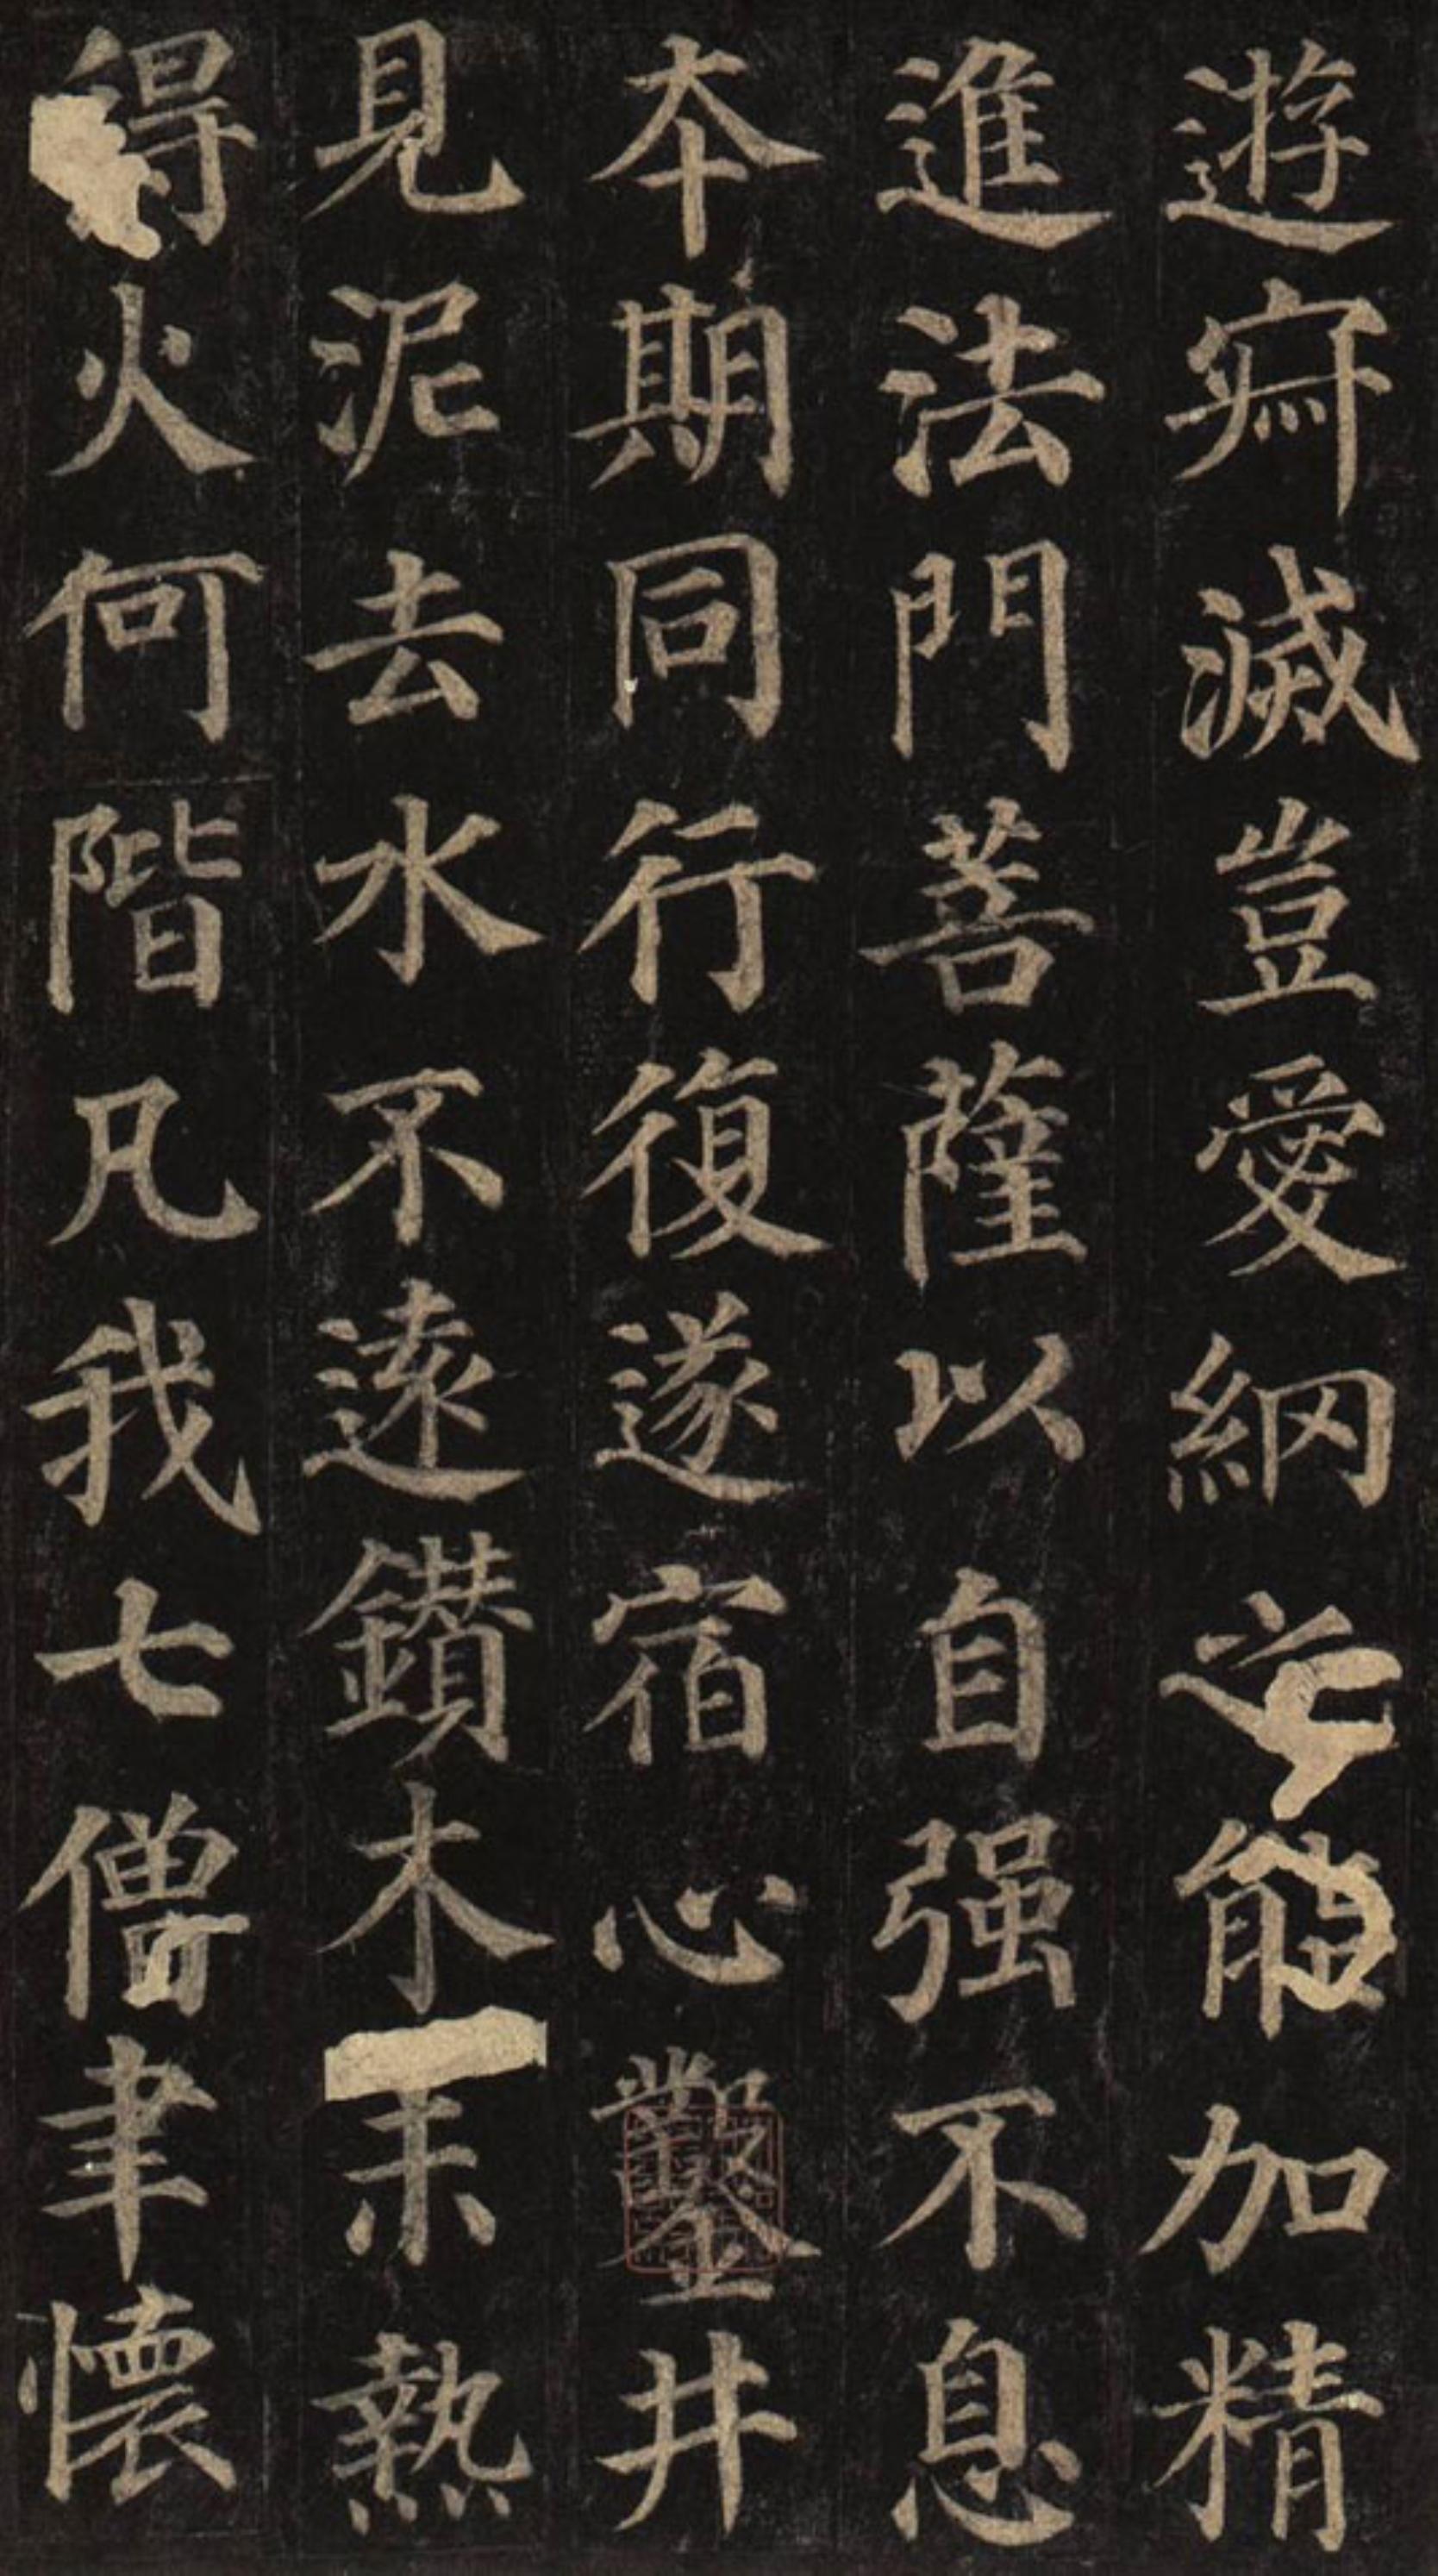 遊寂滅豈愛網之能加精
進法門菩薩以自强不息
夲期同行復遂宿心鑿井
見泥去水不遠鑚木未熱
得火何階凡我七僧聿懷